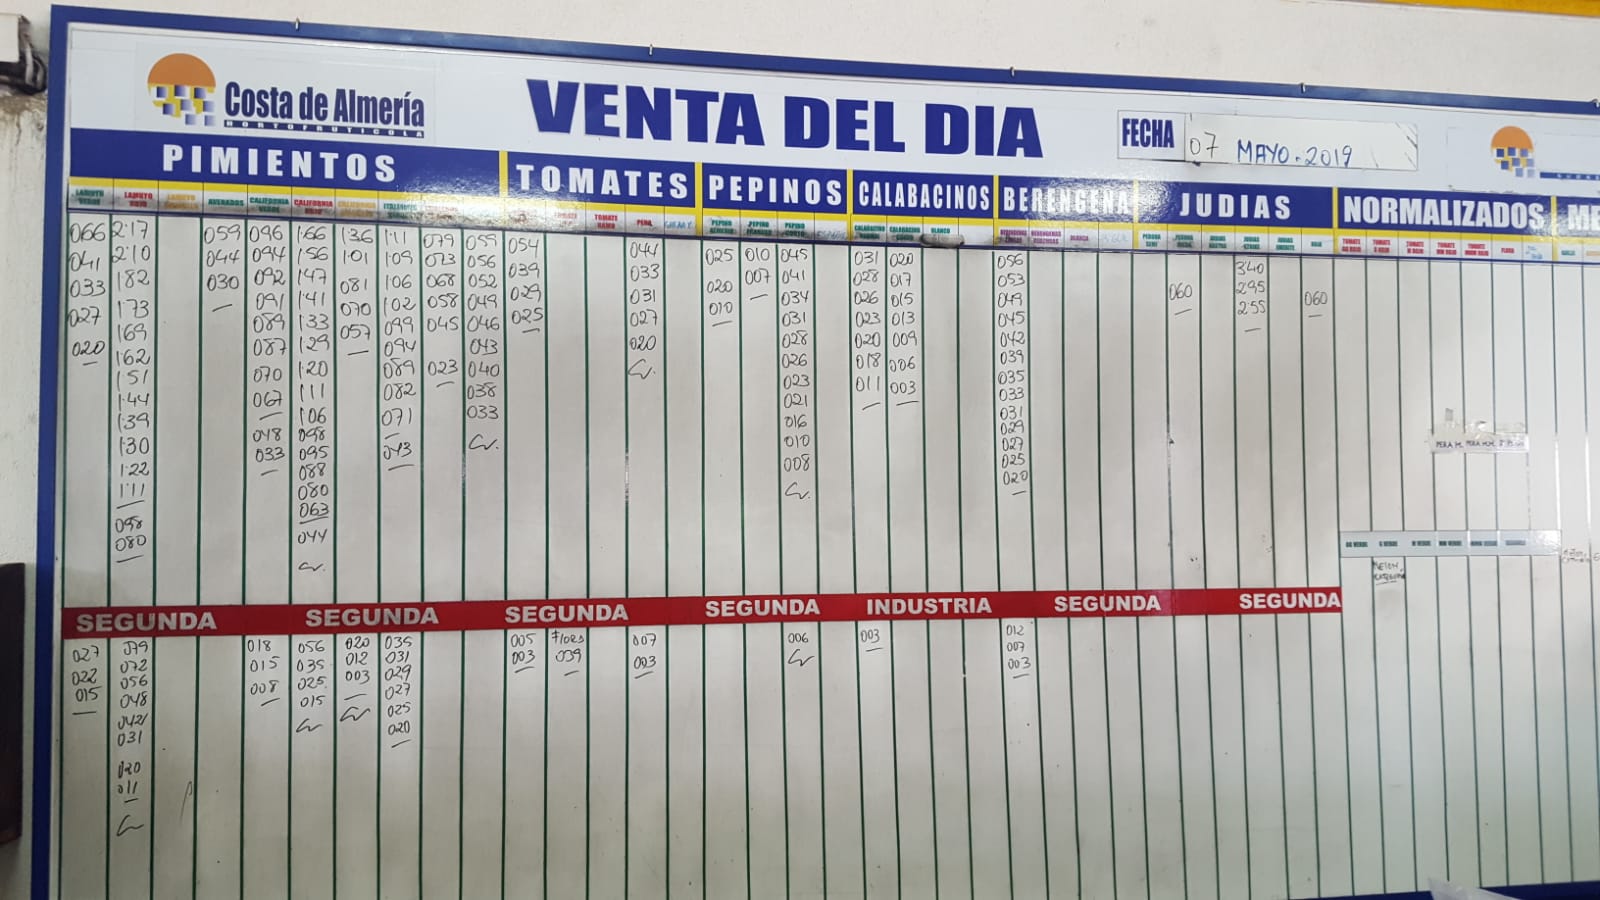 Costa de Almería
HORTOFRUTICOLA
VENTA DEL DIA
FECHA
07 MAYO.2019
PIMIENTOS
TOMATES
PEPINOS
CALABACINOS
BERENGENA
JUDIAS
NORMALIZADOS
ME
LAMUYO VERDE
LAMUYO ROJO
AVERADOS
CALIFORNIA VERDE
CALIFORNIA ROJO
TOMATE RAMO
PERA
PEPINO ALMERIA
PEPINO FRANCES
PEPINO CORTO
BLANCO
BLANCA
066
041
033
027
020
2'17
2'10
1'82
1'73
1'69
1'62
1'51
1'44
1'39
1'30
1'22
1'11
098
080
059
044
030
096
094
092
091
089
087
070
067
048
033
1'66
1'56
1'47
1'41
1'33
1'29
1'20
1'11
1'06
098
095
088
080
063
044
Cv.
1'36
1'01
081
070
057
1'11
1'09
1'06
1'02
099
094
089
082
071
043
079
073
068
058
045
023
059
056
052
049
046
043
040
038
033
Cv.
054
039
029
025
044
033
031
027
020
Cv.
025
020
010
010
007
045
041
034
031
028
026
023
021
016
010
008
Cv.
031
028
026
023
020
018
011
020
017
015
013
009
006
003
056
053
049
045
042
039
035
033
031
029
027
025
020
060
3'40
2'95
2'55
060
PERA M.
PERA M.M.
GG VERDE
G VERDE
M VERDE
MM VERDE
MMM VERDE
MELON
SEGUNDA
SEGUNDA
SEGUNDA
SEGUNDA
INDUSTRIA
SEGUNDA
SEGUNDA
027
022
015
079
072
056
048
042
031
020
011
Cv
018
015
008
056
035
025
015
Cv
020
012
003
Cv
035
031
029
027
025
020
005
003
039
007
003
006
Cv
003
012
007
003